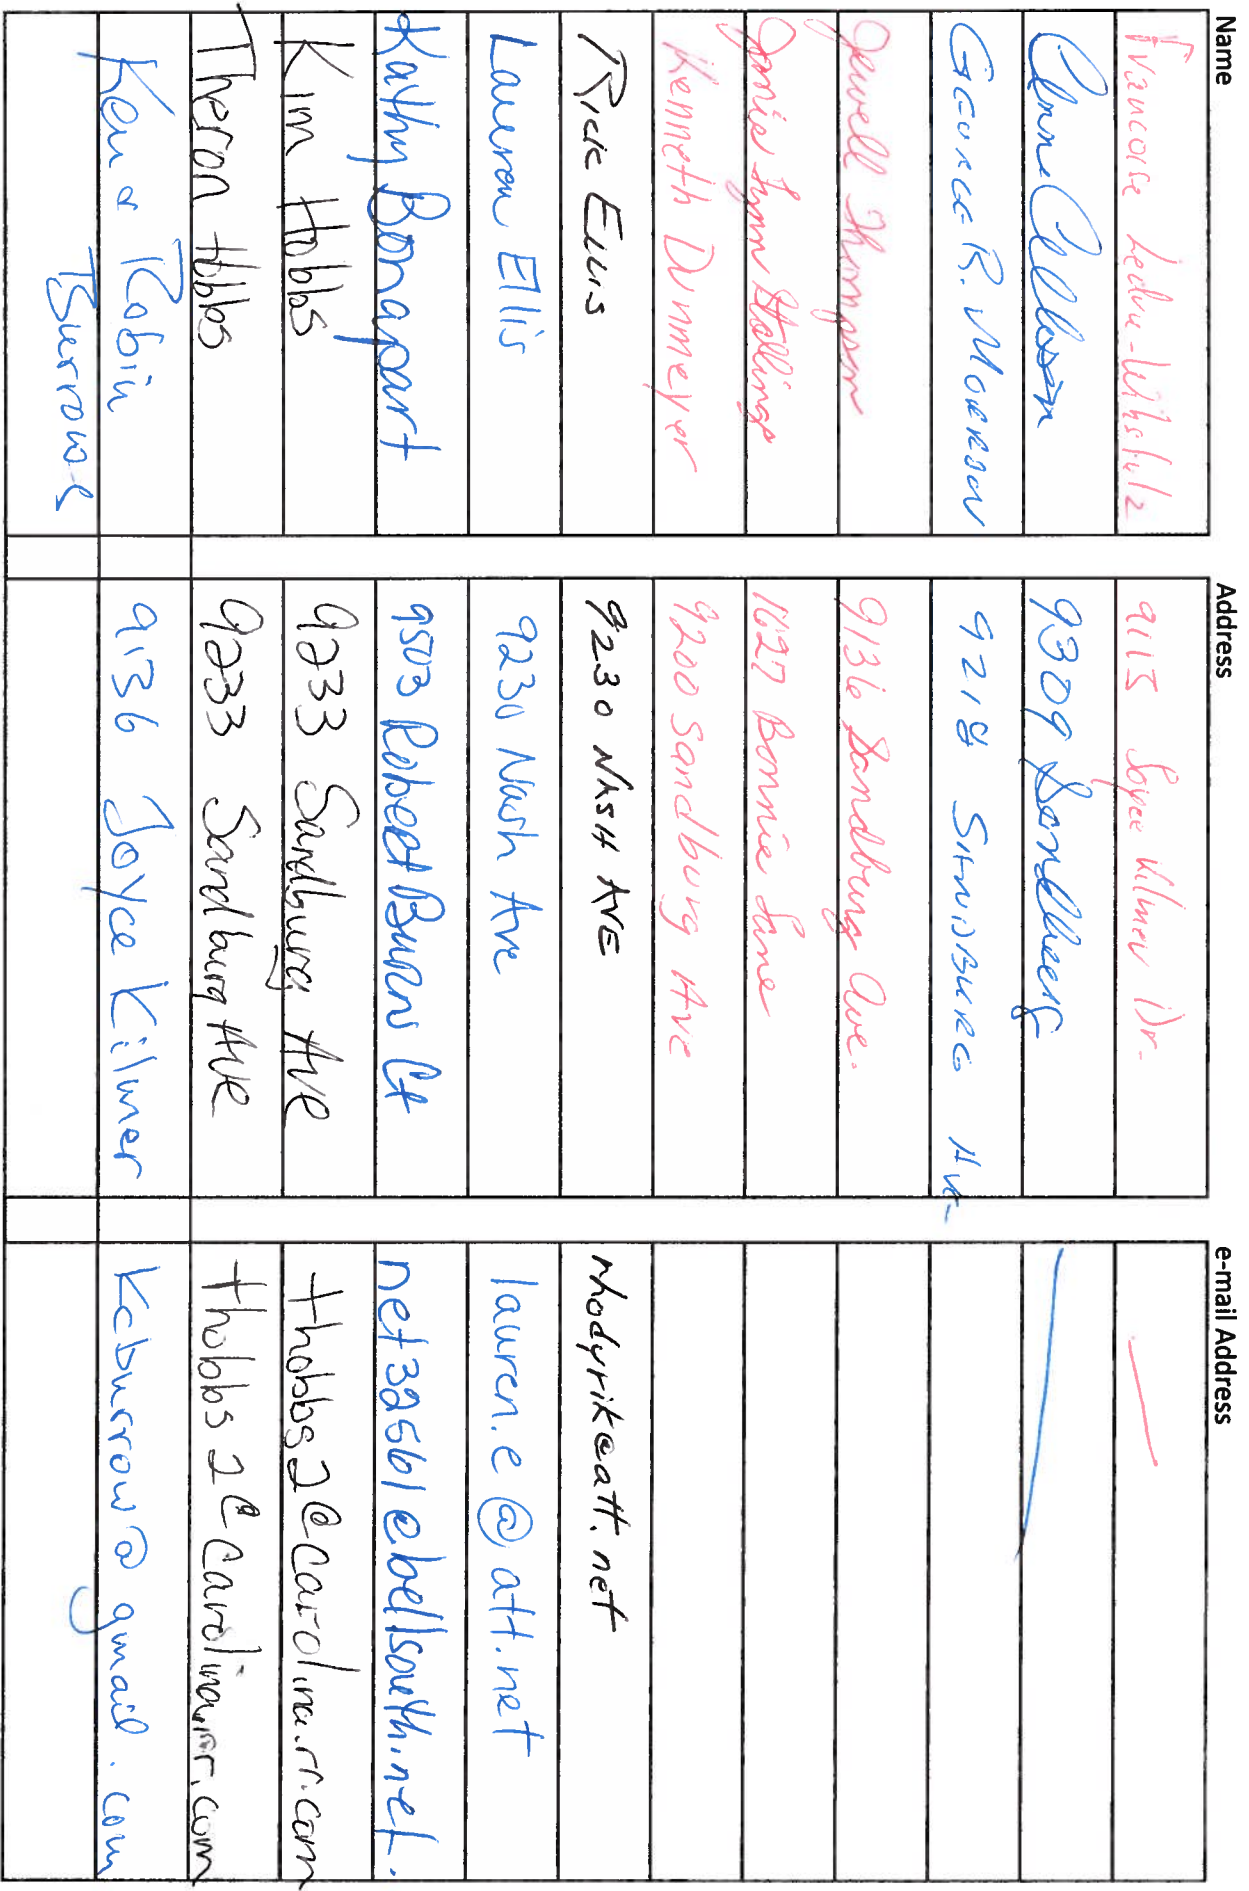 Name Address e-mail Address
Francoise 9115 Joyce Kilmer Dr.
Anne 9309 Sandburg
George R. Morrow 9218 Sandburg Ave
Jewell Thompson 9136 Sandburg Ave.
Janie Lynn Stallings 1627 Bonnie Lane
Kenneth Dunmeyer 9200 Sandburg Ave
Rick Ellis 9230 NASH AVE rhodyrik@att.net
Lauren Ellis 9230 Nash Ave lauren.e@att.net
Kathy Bonapart 9503 Robert Burns Ct net32561@bellsouth.net.
Kim Hobbs 9233 Sandburg Ave thobbs2@carolina.rr.com
Theron Hobbs 9233 Sandburg Ave thobbs2@carolina.rr.com
Ken & Robin 9136 Joyce Kilmer Kcburrow@gmail.com
Burrows